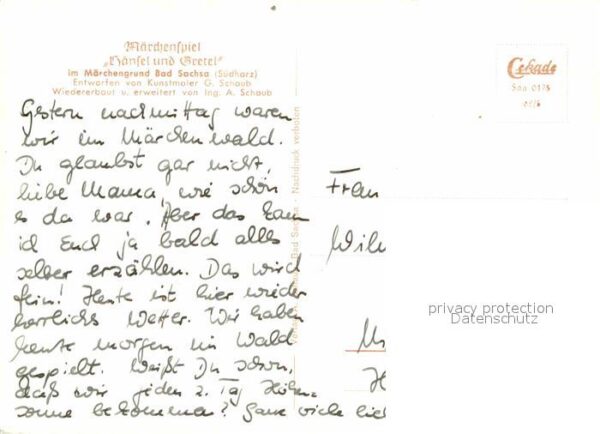 Märchenspiel
„Hänsel und Gretel"
im Märchengrund Bad Sachsa (Südharz)
Entworfen von Kunstmaler G. Schaub
Wiedererbaut u. erweitert von Ing. A. Schaub
Gestern nachmittag waren
wir im Märchenwald.
Du glaubst gar nicht,
liebe Mama, wie schön
es da war. Aber das kann
ich Euch ja bald alles
selber erzählen. Das wird
fein! Heute ist hier wieder
herrliches Wetter. Wir haben
heute morgen im Wald
gespielt. Weißt Du schon,
daß wir jeden 2. Tag Höhen-
sonne bekommen? Ganz viele lie
Bad Sachsa - Nachdruck verboten
Cekade
Saa 0175
Frau
Wil
privacy protection
Datenschutz